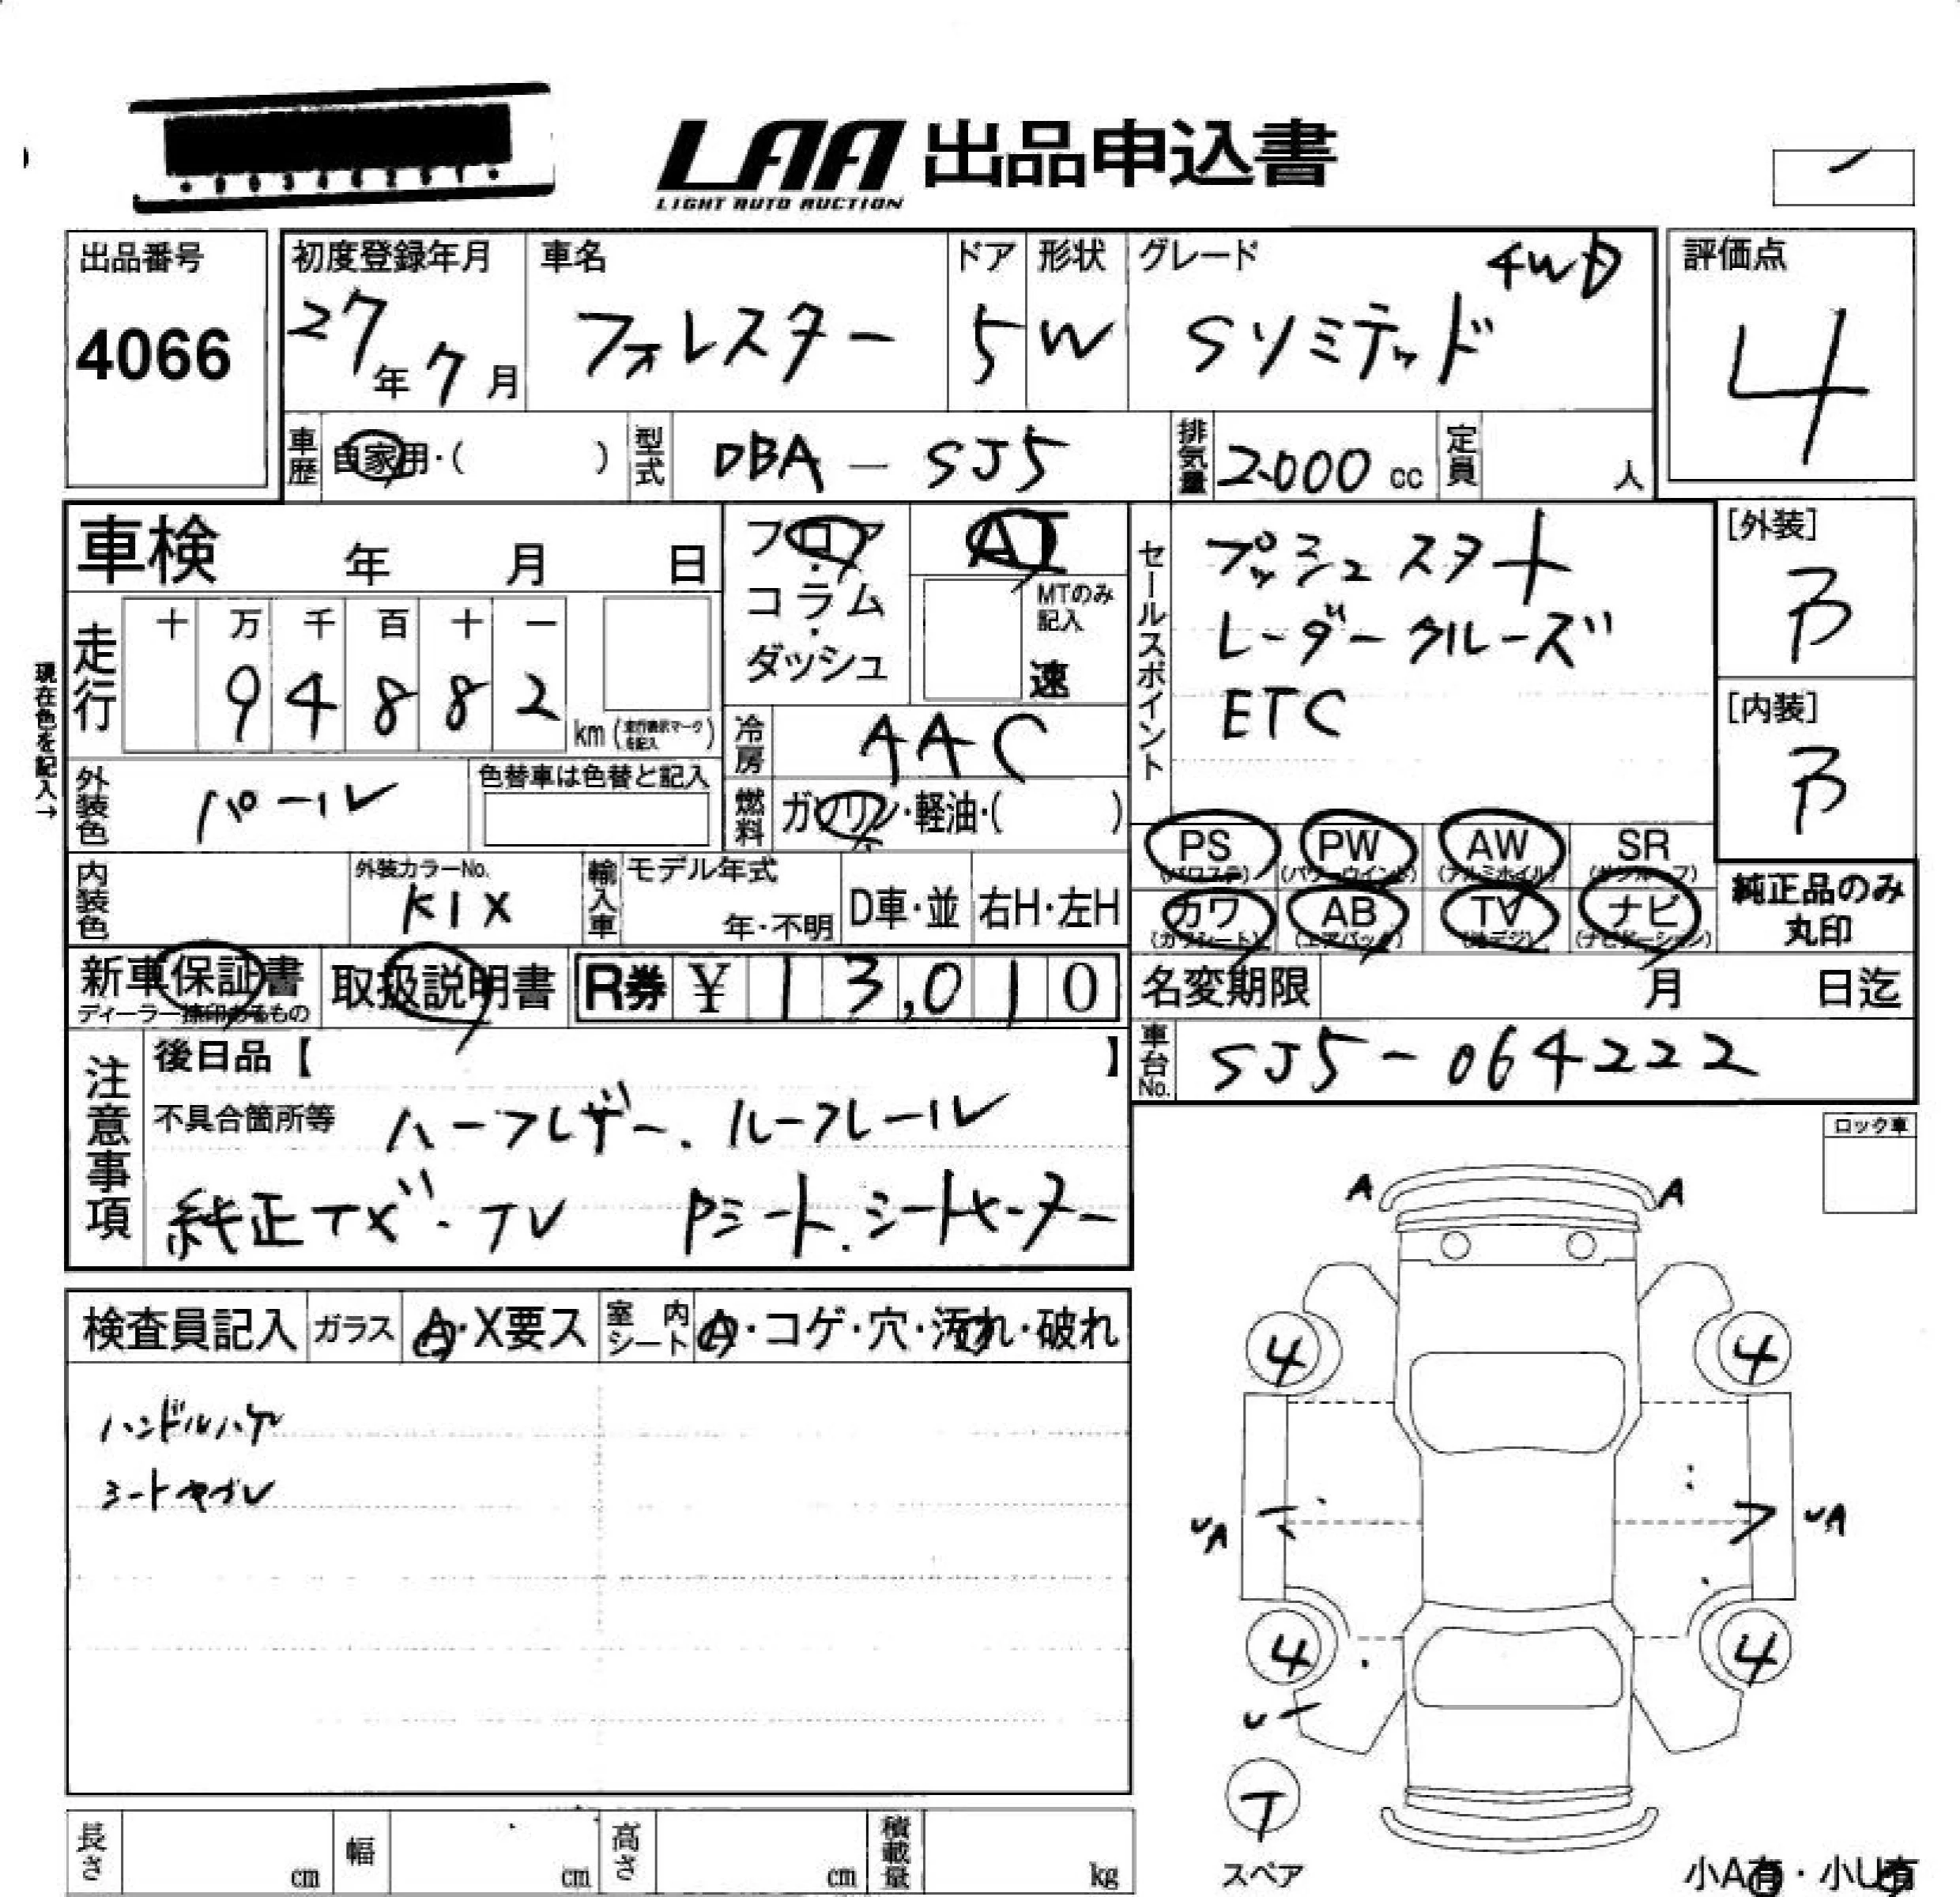 LAA 出品申込書
LIGHT AUTO AUCTION
出品番号
4066
初度登録年月
27年7月
車名
フォレスター
ドア
5
形状
W
グレード
4WD
Sリミテッド
評価点
4
車歴 自家用・( )
型式 DBA - SJ5
排気量 2000 cc
定員 人
車検 年 月 日
フロア
コラム
ダッシュ
AT
MTのみ記入
速
セールスポイント
プッシュスタート
レーダークルーズ
ETC
[外装]
B
[内装]
B
現在色を記入→
走行
十 万 千 百 十 一
9 4 8 8 2
km (走行表示マークを記入)
冷房 AAC
外装色 パール
色替車は色替と記入
燃料 ガソリン・軽油・( )
PS (パワステ)
PW (パワーウインド)
AW (アルミホイル)
SR (サンルーフ)
内装色
外装カラーNo.
K1X
輸入車
モデル年式
年・不明
D車・並
右H・左H
カワ (カワシート)
AB (エアバック)
TV (地デジ)
ナビ (ナビゲーション)
純正品のみ
丸印
新車保証書
ディーラー捺印あるもの
取扱説明書
R券 ¥ 13,010
名変期限 月 日迄
車台No. SJ5-064222
注意事項
後日品【 】
不具合箇所等 ハーフレザー、ルーフレール
純正ナビ・TV Pシート、シートヒーター
ロック車
A A
検査員記入
ガラス A・X要ス
室内シート A・コゲ・穴・汚れ・破れ
ハンドルハゲ
シートヤブレ
4 4
UA UA
4 4
U
T
スペア
長さ cm
幅 cm
高さ cm
積載量 kg
小A有・小U有